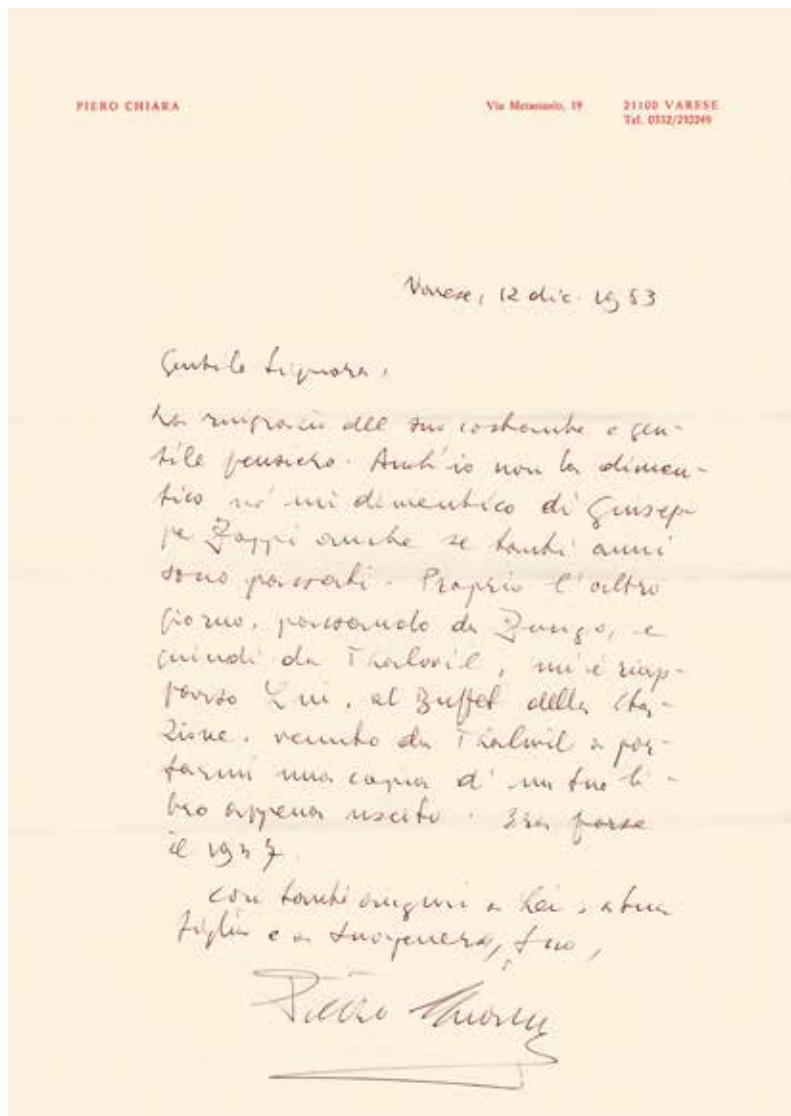 PIERO CHIARA
Via Metastasio, 19 21100 VARESE
Tel. 0332/
Varese, 12 dic. 1983
Gentile Signora,
La ringrazio del suo costante e gen-
tile pensiero. Anch'io non la dimen-
tico né mi dimentico di Giusep
pe Zoppi anche se tanti anni
sono passati. Proprio l'altro
giorno, passando da Zurigo, e
quindi da Thalwil, mi è riap-
parso Lui, al Buffet della Sta-
zione, venuto da Thalwil a por-
tarmi una copia d'un suo li-
bro appena uscito. Era forse
il
Con tanti auguri a Lei, a sua
figlia e a suo genero, suo,
Piero Chiara